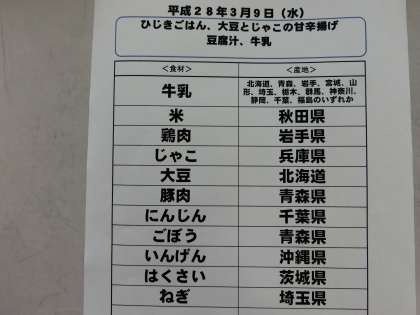 平成28年3月9日(水)
ひじきごはん、大豆とじゃこの甘辛揚げ
豆腐汁、牛乳
<食材> <産地>
牛乳 北海道、青森、岩手、宮城、山
形、埼玉、栃木、群馬、神奈川、
静岡、千葉、福島のいずれか
米 秋田県
鶏肉 岩手県
じゃこ 兵庫県
大豆 北海道
豚肉 青森県
にんじん 千葉県
ごぼう 青森県
いんげん 沖縄県
はくさい 茨城県
ねぎ 埼玉県